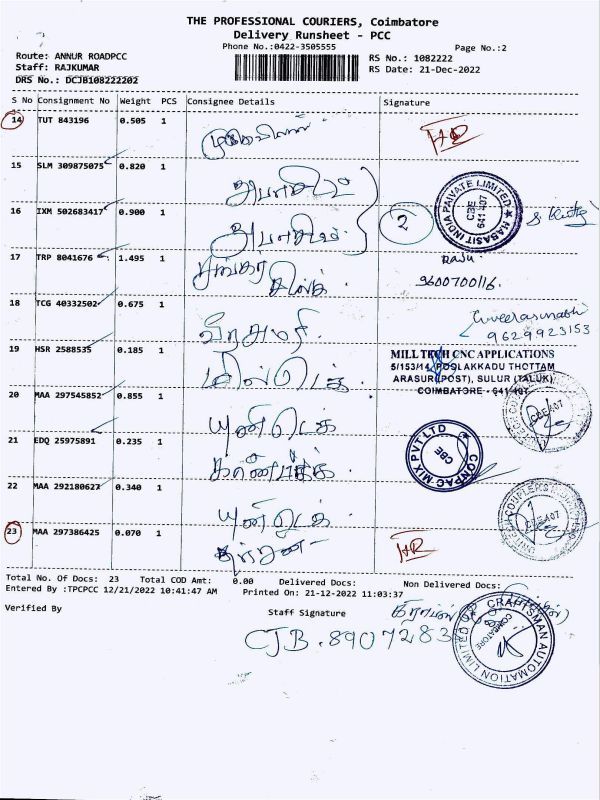 THE PROFESSIONAL COURIERS, Coimbatore
Delivery Runsheet - PCC
Phone No.:0422-3505555
Page No.:2
Route: ANNUR ROADPCC
Staff: RAJKUMAR
DRS No.: DCJB108222202
RS No.: 1082222
RS Date: 21-Dec-2022
S No Consignment No Weight PCS Consignee Details Signature
14 TUT 843196 0.505 1
15 SLM 309875075 0.820 1
16 IXM 502683417 0.900 1
2
HABASIT INDIA PRIVATE LIMITED
CBE
641 407
17 TRP 8041676 1.495 1 சங்கர்
Raju
9600700116.
18 TCG 40332502 0.675 1
9629923153
19 HSR 2588535 0.185 1 மில்டெக்
MILL TECH CNC APPLICATIONS
5/153/14, POOLAKKADU THOTTAM
ARASUR(POST), SULUR (TALUK)
COIMBATORE - 641 407
20 MAA 297545852 0.855 1 யுனிடெக்
21 EDQ 25975891 0.235 1
COMPAC MIX PVT LTD
CBE
22 MAA 292180627 0.340 1 யுனிடெக்
23 MAA 297386425 0.070 1
Total No. Of Docs: 23 Total COD Amt: 0.00 Delivered Docs: Non Delivered Docs:
Entered By :TPCPCC 12/21/2022 10:41:47 AM Printed On: 21-12-2022 11:03:37
Verified By
Staff Signature
CJB.8907283
CRAFTSMAN AUTOMATION LIMITED
COIMBATORE